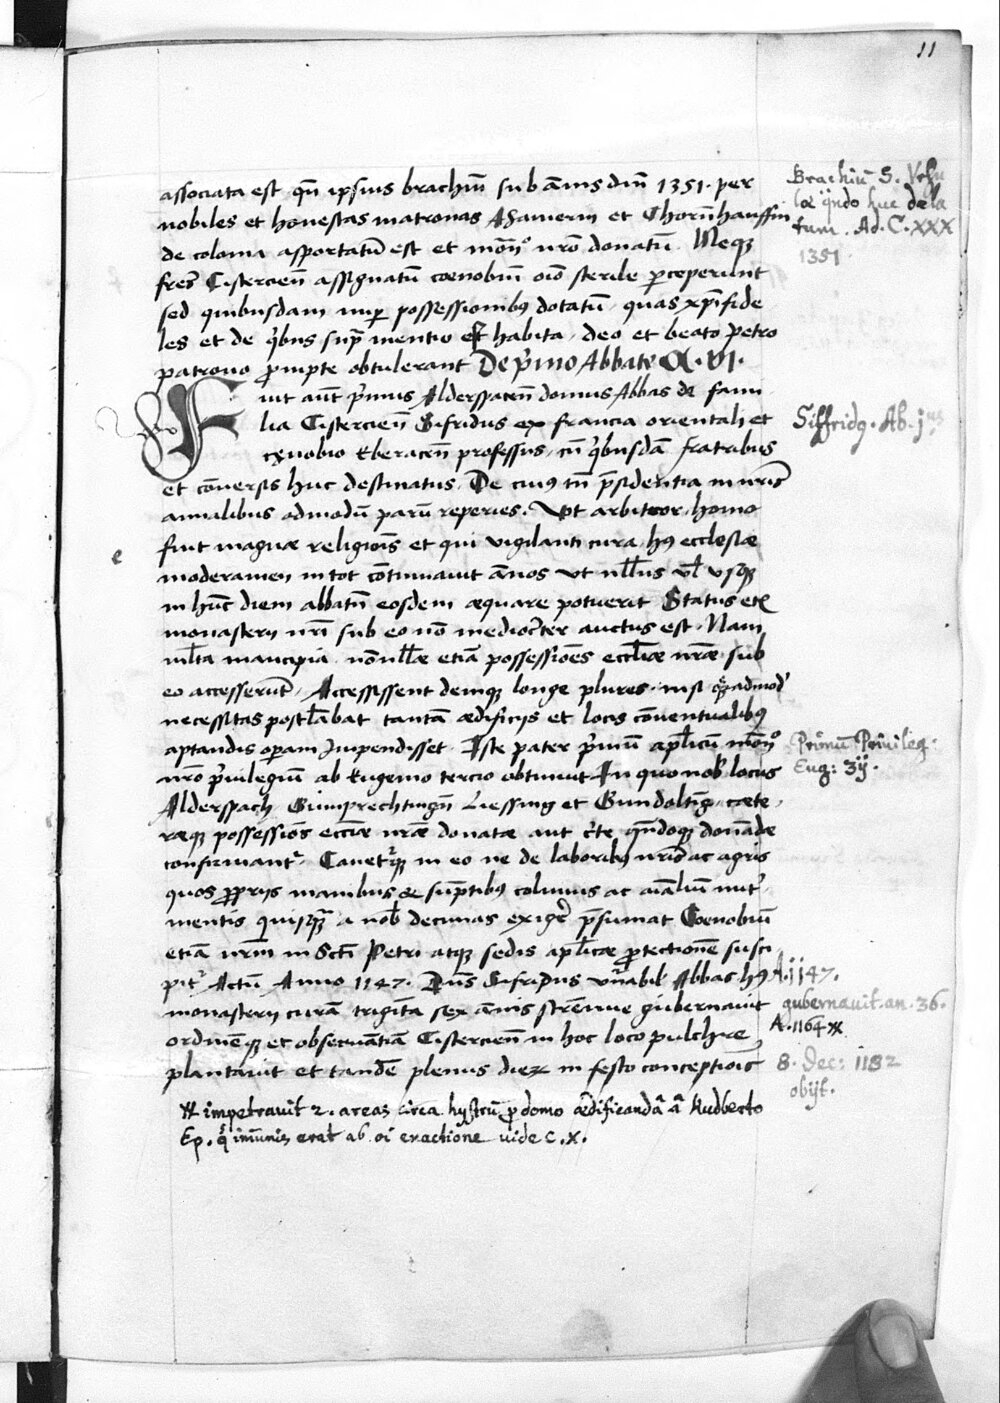 11
associata est qn̄ ipsius brachiū sub ānis dn̄i 1351. per
nobiles et honestas matronas Ahamerin et Chornn̄hauffin
de colonia asportatū est et mon̄º nr̄o donatū. Neqꝫ
fres̄ Cistercien̄ assignatū coenobiū oīo sterile ꝑceperunt
sed quibusdam nuꝑ possessionibꝰ dotatū, quas xp̄ifide
les et de qⁱbus supᵃ mentio est habita, deo et beato petro
patrono ꝓmpte obtulerant De pⁱmo Abbate Ca. VI.
Fuit aūt pⁱmus Alderspacen̄ domus Abbas de fami
lia Cistercien̄ Sifridus ex francia orientali et
cęnobio Eberacen̄ professus, cū qⁱbusdā fratribus
et cōversis huc destinatus. De cuiꝰ tn̄ p̄sidentia in nr̄is
annalibus admodū parū reperies. Vt arbitror, homo
fuit magnae religiōis et qui vigilanti cura hꝰ ecclesiae
e
moderamen in tot cōtinuavit ānos vt nl̄lus vl̄ vsqꝫ
in hūc diem abbatū eosdem aequare potuerit Status etc̄
monastery nr̄i sub eo nō mediocⁱter auctus est. Nam
ml̄ta mancipia, nonnl̄lae etiā possessiōes eccl̄iae nr̄ae sub
eo accesserūt, Accessissent deniqꝫ longe plures, nisi q̄ᵃadmod̄
necessitas postl̄abat tantā aedificijs et locis cōventualibꝰ
aptandis oꝑam Inpendisset. Iste pater pⁱmū apl̄icū mon̄º
nr̄o pⁱuilegiū ab Eugenio tercio obtinuit In quo nob̄ locus
Alderspach, Gumprechtingn̄ Liessing et Gundoltīg, caete
raeqꝫ possessiōs eccl̄iae nr̄ae donatae aut cᵉte qn̄doqꝫ donādae
confirmantʳ. Cavetʳqꝫ in eo ne de laboribꝰ nr̄is ac agris
quos ꝓprijs manibus & sūptibꝰ colimus ac aīaliū nutʳ
mentis quisqᵃ a nob̄ decimas exigēr p̄sumat Coenobiū
etiā nrm̄ in Scti Petri atqꝫ sedis apl̄icae ꝓtectionē susci
pitʳ Actū Anno 1147. Dn̄s Sifridus vn̄abil̄ Abbas hꝰ
monastery curā trigīta sex ānis strēnue gubernavit
ordinēqꝫ et obseruātiā Cistercien̄ in hoc loco pulchre
plantavit et tandē plenus dieꝝ in festo conceptiōis
※ impetravit 2. areas circa hystrū ꝓ domo aedificandā ā Rudberto
Ep. q̄ īmunis erat ab oī exactione vide c. X.
Brachiū S. Vrsu
lae qn̄do huc dela
tum. Ad. C. XXX
1351.
Siffridꝰ. Ab. jᵘˢ
Primū Priuileg:
Eug: 3ij.
A. 1147.
gubernavit. an. 36.
A. 1164 ※
8. Dec: 1182
obijt.